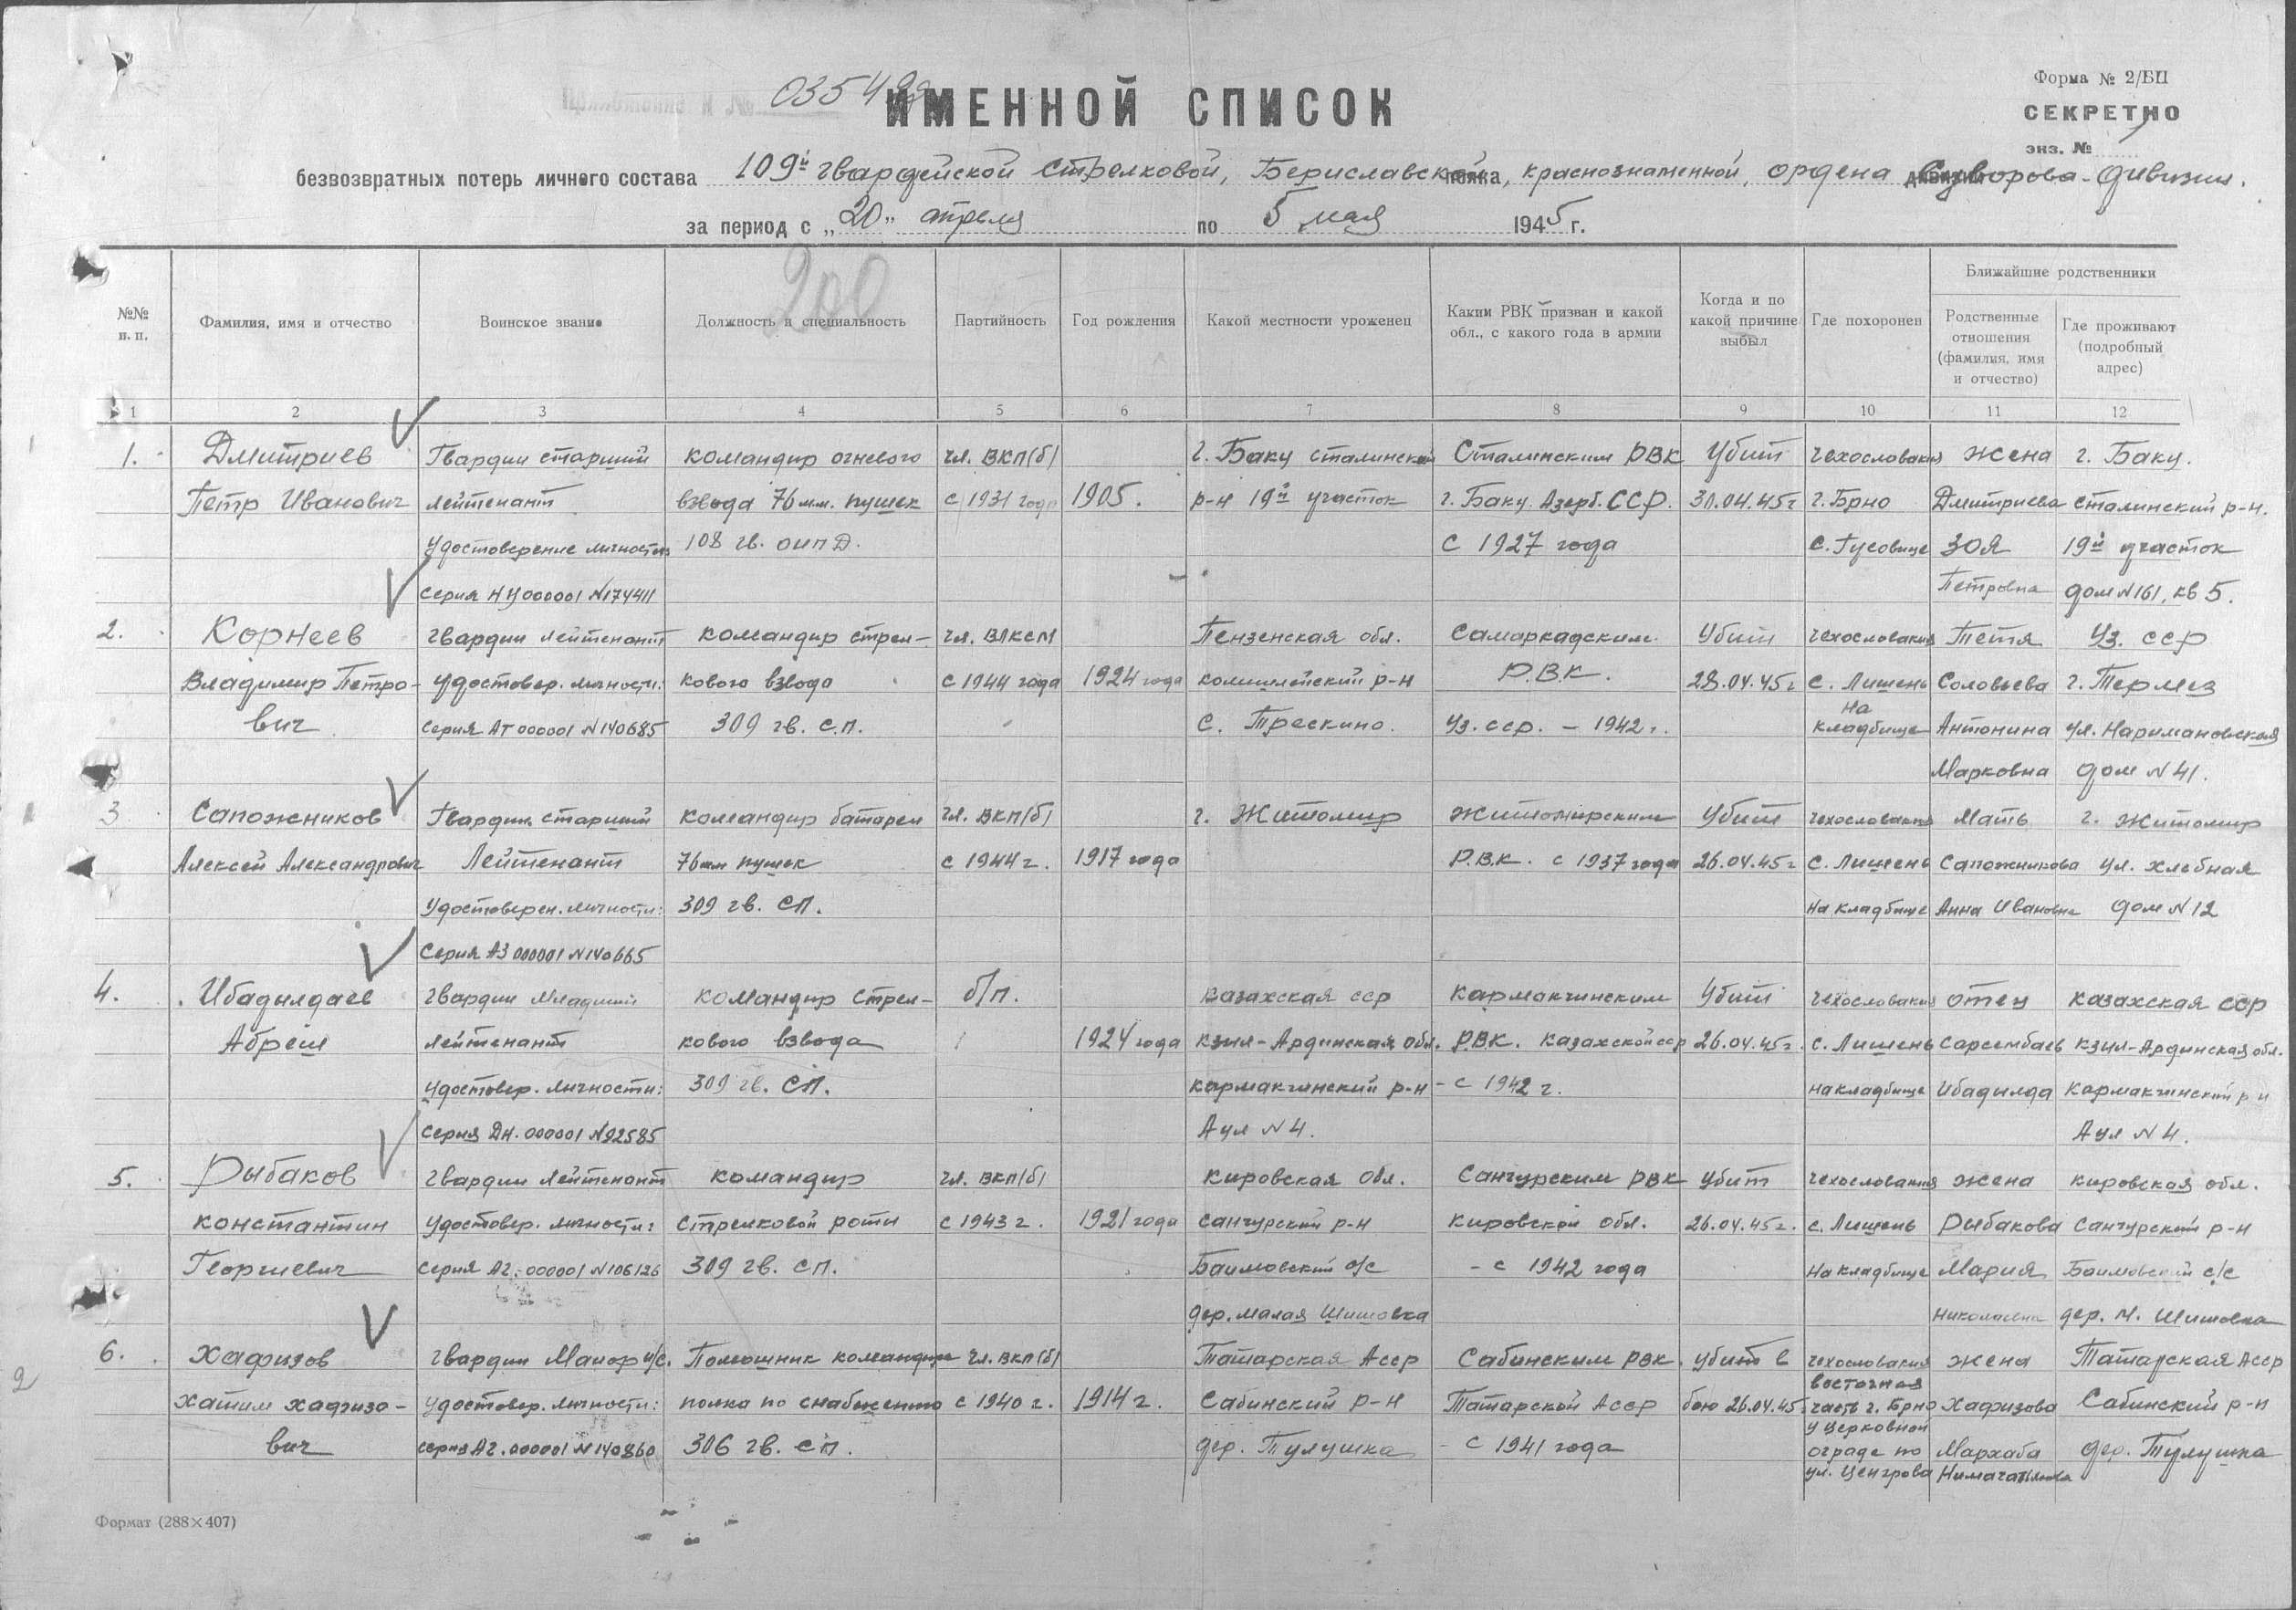 03549
Форма № 2/БП
ИМЕННОЙ СПИСОК
СЕКРЕТНО
экз. №
безвозвратных потерь личного состава 109й гвардейской стрелковой, Бериславской, краснознаменной, ордена Суворова - дивизии.
за период с „20" апреля по 5 мая 1945 г.
200
№№ п. п.
Фамилия, имя и отчество
Воинское звание
Должность и специальность
Партийность
Год рождения
Какой местности уроженец
Каким РВК призван и какой обл., с какого года в армии
Когда и по какой причине выбыл
Где похоронен
Ближайшие родственники
Родственные отношения (фамилия, имя и отчество)
Где проживают (подробный адрес)
1 2 3 4 5 6 7 8 9 10 11 12
1. Дмитриев Гвардии старший командир огневого чл. ВКП(б) г. Баку сталинский Сталинским РВК Убит Чехословакия жена г. Баку.
Петр Иванович лейтенант взвода 76 мм. пушек с 1931 года 1905. р-н 19й участок г. Баку. Азерб. ССР. 30.04.45г г. Брно Дмитриева сталинский р-н.
Удостоверение личности 108 гв. оипД. с 1927 года с. Гусовице Зоя 19й участок
Серия НУ 000001 №174411 Петровна дом №161, кв 5.
2. Корнеев гвардии лейтенант командир стрел- чл. ВЛКСМ Пензенская обл. Самаркадским Убит Чехословакия Тетя Уз. сср
Владимир Петро- удостовер. личности: кового взвода с 1944 года 1924 года колышлейский р-н Р.В.К. 28.04.45г с. Лишень Соловьева г. Термез
вич серия АТ 000001 №140685 309 гв. с.п. с. Трескино. Уз. сср. - 1942 г. на кладбище Антонина ул. Наримановская
Марковна дом №41.
3 Сапожников Гвардии старший командир батареи чл. ВКП(б) г. Житомир Житомирским Убит Чехословакия Мать г. Житомир
Алексей Александрович Лейтенант 76мм пушек с 1944 г. 1917 года Р.В.К. с 1937 года 26.04.45г с. Лишень Сапожникова ул. Хлебная
Удостоверен. личности: 309 гв. СП. на кладбище Анна Ивановна дом №12
Серия АЗ 000001 №140665
4. Ибадылдаев гвардии младший командир стрел- б/п. казахская сср кармакчинским Убит Чехословакия отец казахская сср
Абреш лейтенант кового взвода 1924 года кзыл-Ардинская обл. Р.В.К. казахской сср 26.04.45г. с. Лишень Сарсембаев кзыл-Ардинская обл.
удостовер. личности: 309 гв. СП. кармакчинский р-н - с 1942 г. на кладбище Ибадылда кармакчинский р-н
серия ДН. 000001 №92585 Аул №4. Аул №4.
5. Рыбаков гвардии лейтенант командир чл. ВКП(б) кировская обл. Санчурским РВК убит Чехословакия жена кировская обл.
константин удостовер. личности: стрелковой роты с 1943 г. 1921 года санчурский р-н кировской обл. 26.04.45г. с. Лишень Рыбакова санчурский р-н
Георгиевич серия АГ. 000001 №106126 309 гв. сп. с/с - с 1942 года на кладбище Мария с/с
дер. малая Шишовка Николаевна дер. М. Шишовка
6. Хафизов гвардии Майор и/с. Помошник командира чл. ВКП(б) Татарская Асср Сабинским РВК убит в Чехословакия жена Татарская Асср
хатим хафизо- удостовер. личности: полка по снабжению с 1940 г. 1914 г. Сабинский р-н Татарской Асср бою 26.04.45г. восточная часть г. Брно Хафизова Сабинский р-н
вич серия АГ. 000001 №140860 306 гв. сп. дер. Тулушка - с 1941 года у церковной ограде по Мархаба дер. Тулушка
ул. Ценгрова
2
Формат (288×407)